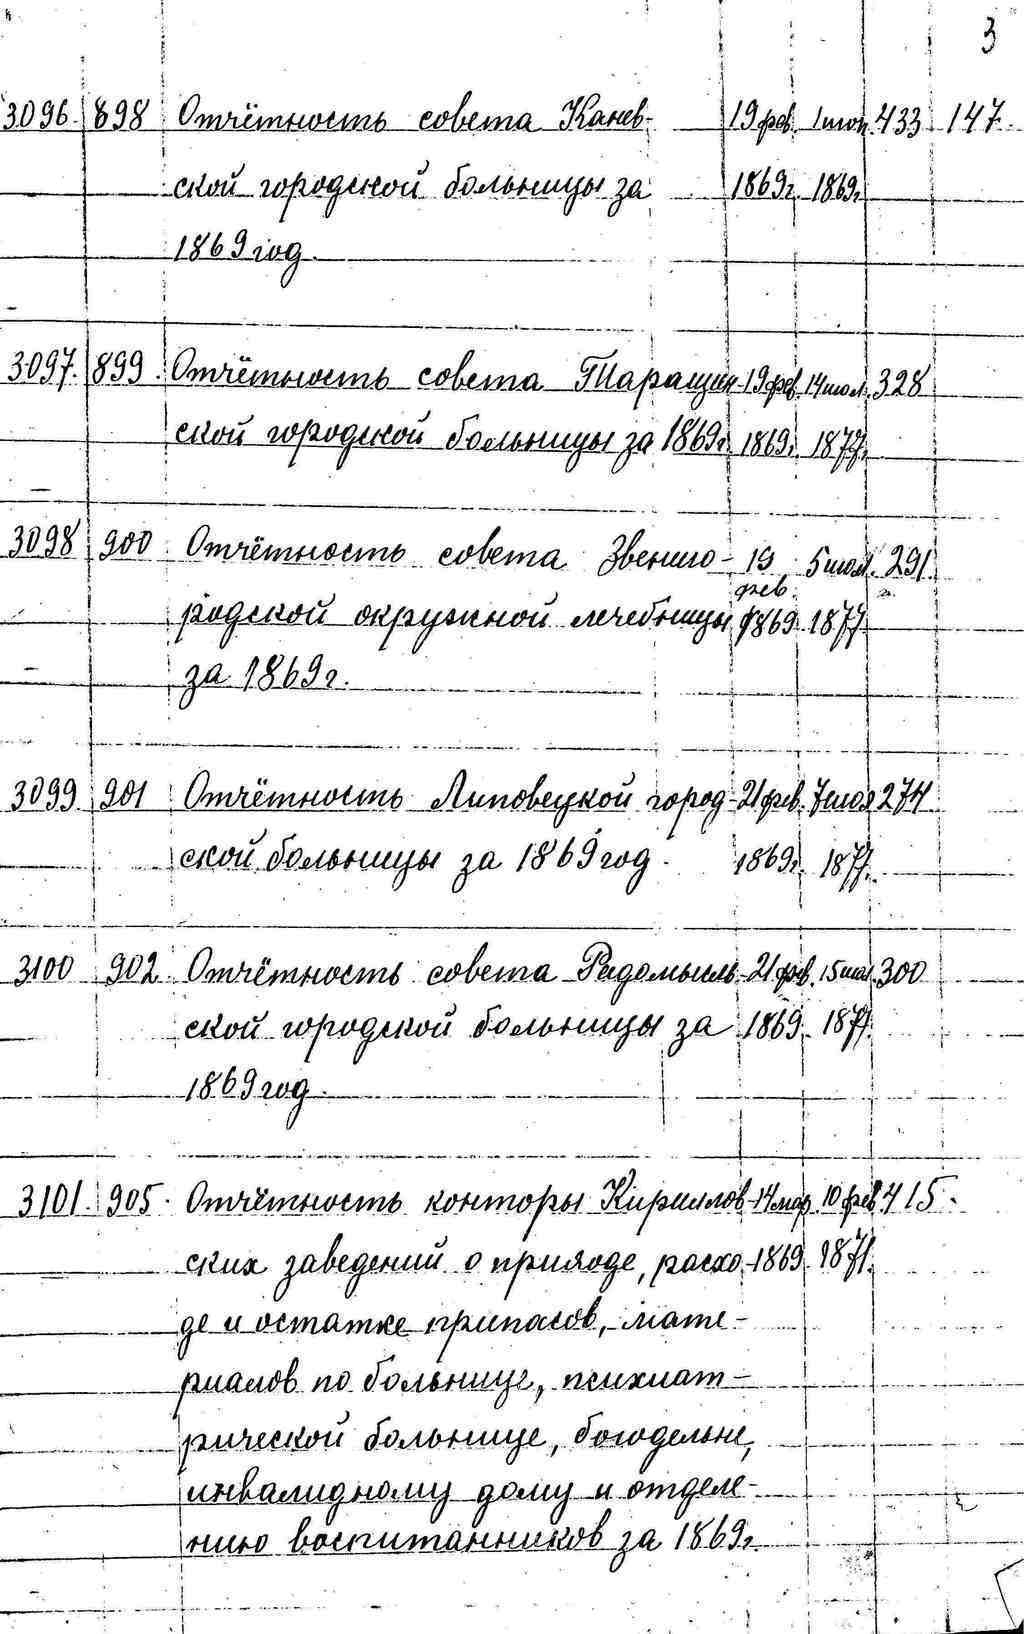 3
3096. 898 Отчётность совета Канев- 19 фев. 433 147.
ской городской больницы за 1869г. 1869г.
1869 год.
3097. 899. Отчётность совета Таращан- 19 фев. 14 июл. 328
ской городской больницы за 1869г. 1869г. 1877.
3098 900 Отчётность совета Звениго- 19 5 июл. 291.
фев.
родской окружной лечебницы 1869 1877
за 1869г.
3099 901 Отчётность Липовецкой город- 21 фев. 274
ской больницы за 1869 год. 1869г. 1877.
3100 902. Отчётность совета Радомысль- 21 фев. 15 июл. 300
ской городской больницы за 1869. 1877.
1869 год.
3101. 905. Отчётность конторы Кириллов- 14 мар. 10 фев. 415.
ских заведений о приходе, расхо- 1869. 1871.
де и остатке припасов, мате-
риалов по больнице, психиат-
рической больнице, богодельне,
инвалидному дому и отделе-
нию воспитанников за 1869г.